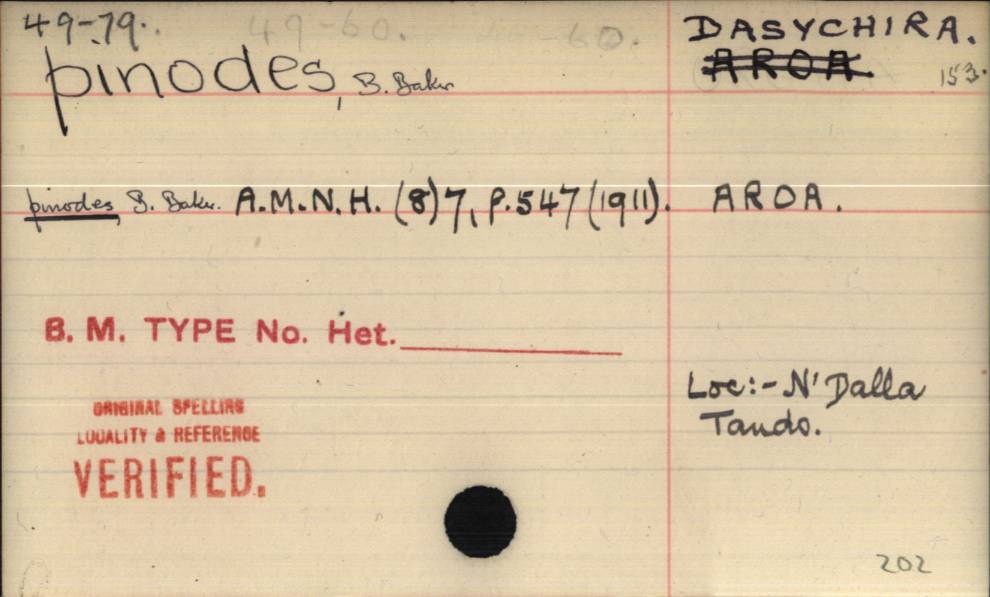 49-79.
49-60.
-60.
DASYCHIRA.
pinodes, B. Baker
AROA.
153.
pinodes, B. Baker. A.M.N.H. (8)7, p.547 (1911). AROA.
B. M. TYPE No. Het.
Loc:- N'Dalla
Tando.
ORIGINAL SPELLING
LOCALITY & REFERENCE
VERIFIED.
202